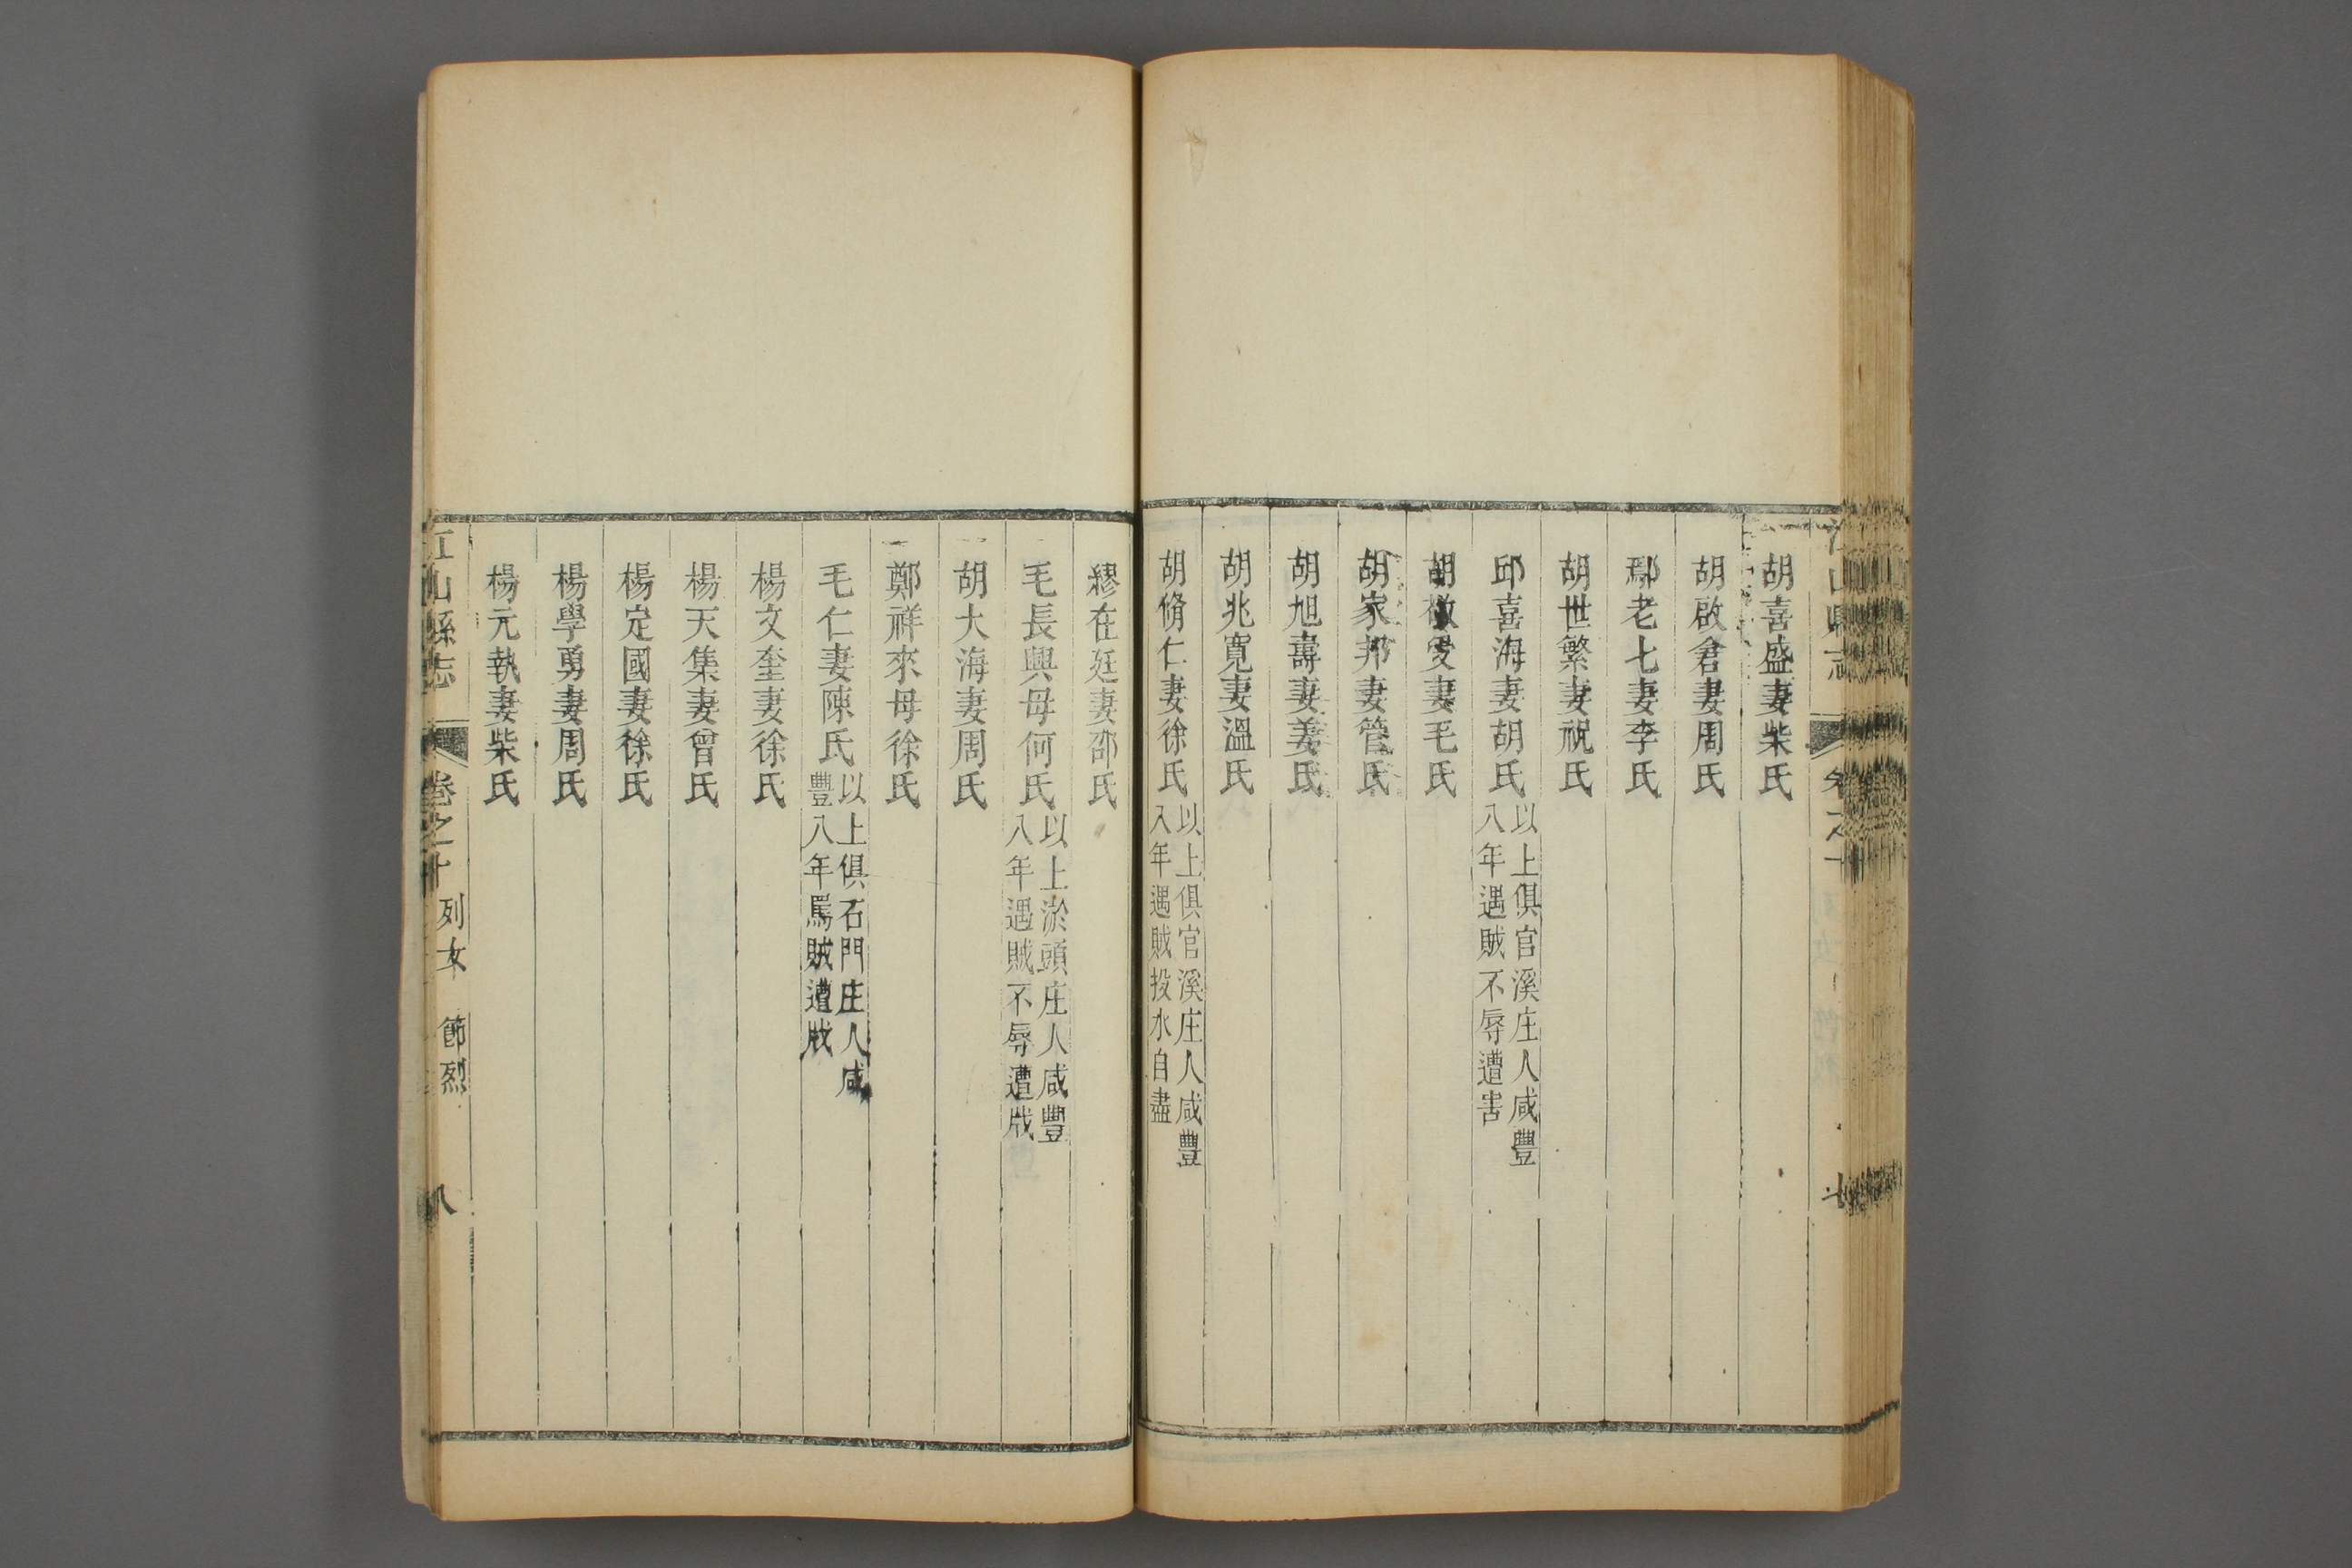 胡喜盛妻柴氏
胡啟倉妻周氏
鄢老七妻李氏
胡世繁妻祝氏
邱喜海妻胡氏以上俱官溪庄人咸豐
八年遇賊不辱遭害
胡敬愛妻毛氏
胡家邦妻管氏
胡旭壽妻姜氏
胡兆寬妻溫氏
胡脩仁妻徐氏以上俱官溪庄人咸豐
八年遇賊投水自盡
繆在廷妻邵氏
毛長興母何氏以上淤頭庄人咸豐
八年遇賊不辱遭戕
胡大海妻周氏
鄭祥來母徐氏
毛仁妻陳氏以上俱石門庄人咸
豐八年罵賊遭戕
楊文奎妻徐氏
楊天集妻曾氏
楊定國妻徐氏
楊學勇妻周氏
楊元執妻柴氏
江山縣志 卷之十 列女 節烈 八